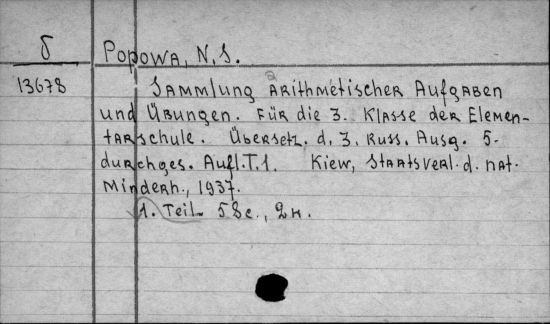 δ
Popowa, N.S.
13678
Sammlung arithmetischer Aufgaben
und Übungen. Für die 3. Klasse der Elemen-
tarschule. Übersetz. d. 3. Russ. Ausg. 5.
durchges. Aufl. T.1. Kiew, Staatsverl. d. nat.
Minderh., 1937.
1. Teil 58 c., 2 н.